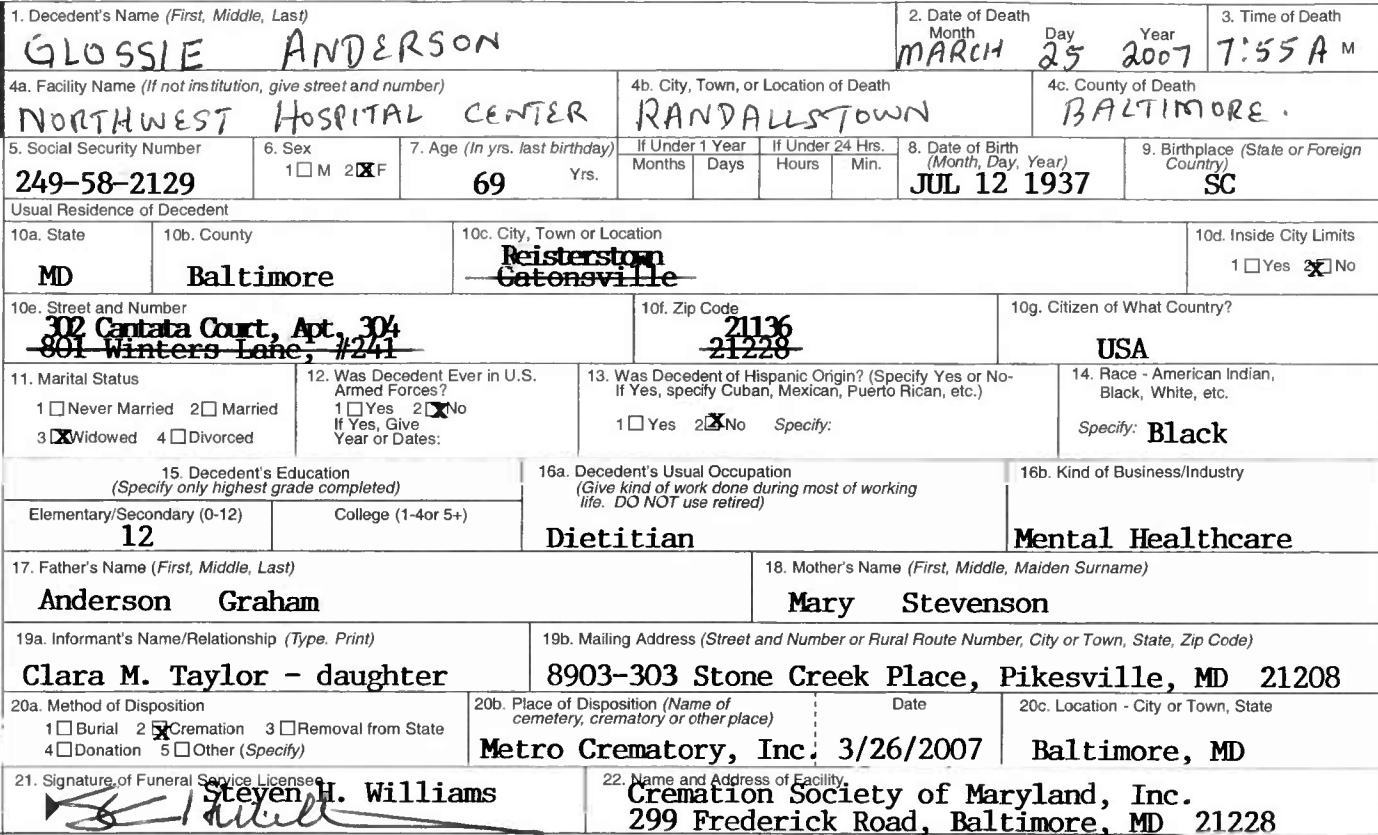 1. Decedent's Name (First, Middle, Last)
GLOSSIE ANDERSON
2. Date of Death
Month Day Year
MARCH 25 2007
3. Time of Death
7:55 A M
4a. Facility Name (If not institution, give street and number)
NORTHWEST HOSPITAL CENTER
4b. City, Town, or Location of Death
RANDALLSTOWN
4c. County of Death
BALTIMORE.
5. Social Security Number
249-58-2129
6. Sex
1 ☐ M 2 ☒ F
7. Age (In yrs. last birthday)
69 Yrs.
If Under 1 Year
Months Days
If Under 24 Hrs.
Hours Min.
8. Date of Birth
(Month, Day, Year)
JUL 12 1937
9. Birthplace (State or Foreign
Country)
SC
Usual Residence of Decedent
10a. State
MD
10b. County
Baltimore
10c. City, Town or Location
Reisterstown
Catonsville
10d. Inside City Limits
1 ☐ Yes 2 ☒ No
10e. Street and Number
302 Cantata Court, Apt, 304
801 Winters Lane, #241
10f. Zip Code
21136
21228
10g. Citizen of What Country?
USA
11. Marital Status
1 ☐ Never Married 2 ☐ Married
3 ☒ Widowed 4 ☐ Divorced
12. Was Decedent Ever in U.S.
Armed Forces?
1 ☐ Yes 2 ☒ No
If Yes, Give
Year or Dates:
13. Was Decedent of Hispanic Origin? (Specify Yes or No-
If Yes, specify Cuban, Mexican, Puerto Rican, etc.)
1 ☐ Yes 2 ☒ No Specify:
14. Race - American Indian,
Black, White, etc.
Specify: Black
15. Decedent's Education
(Specify only highest grade completed)
Elementary/Secondary (0-12)
12
College (1-4or 5+)
16a. Decedent's Usual Occupation
(Give kind of work done during most of working
life. DO NOT use retired)
Dietitian
16b. Kind of Business/Industry
Mental Healthcare
17. Father's Name (First, Middle, Last)
Anderson Graham
18. Mother's Name (First, Middle, Maiden Surname)
Mary Stevenson
19a. Informant's Name/Relationship (Type. Print)
Clara M. Taylor - daughter
19b. Mailing Address (Street and Number or Rural Route Number, City or Town, State, Zip Code)
8903-303 Stone Creek Place, Pikesville, MD 21208
20a. Method of Disposition
1 ☐ Burial 2 ☒ Cremation 3 ☐ Removal from State
4 ☐ Donation 5 ☐ Other (Specify)
20b. Place of Disposition (Name of
cemetery, crematory or other place)
Metro Crematory, Inc.
Date
3/26/2007
20c. Location - City or Town, State
Baltimore, MD
21. Signature of Funeral Service Licensee
Steven H. Williams
22. Name and Address of Facility
Cremation Society of Maryland, Inc.
299 Frederick Road, Baltimore, MD 21228